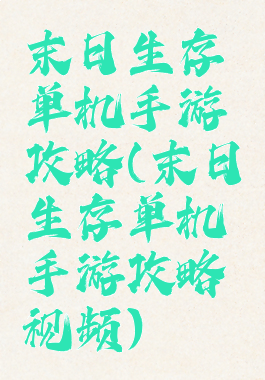 末日生存
单机手游
攻略(末日
生存单机
手游攻略
视频)